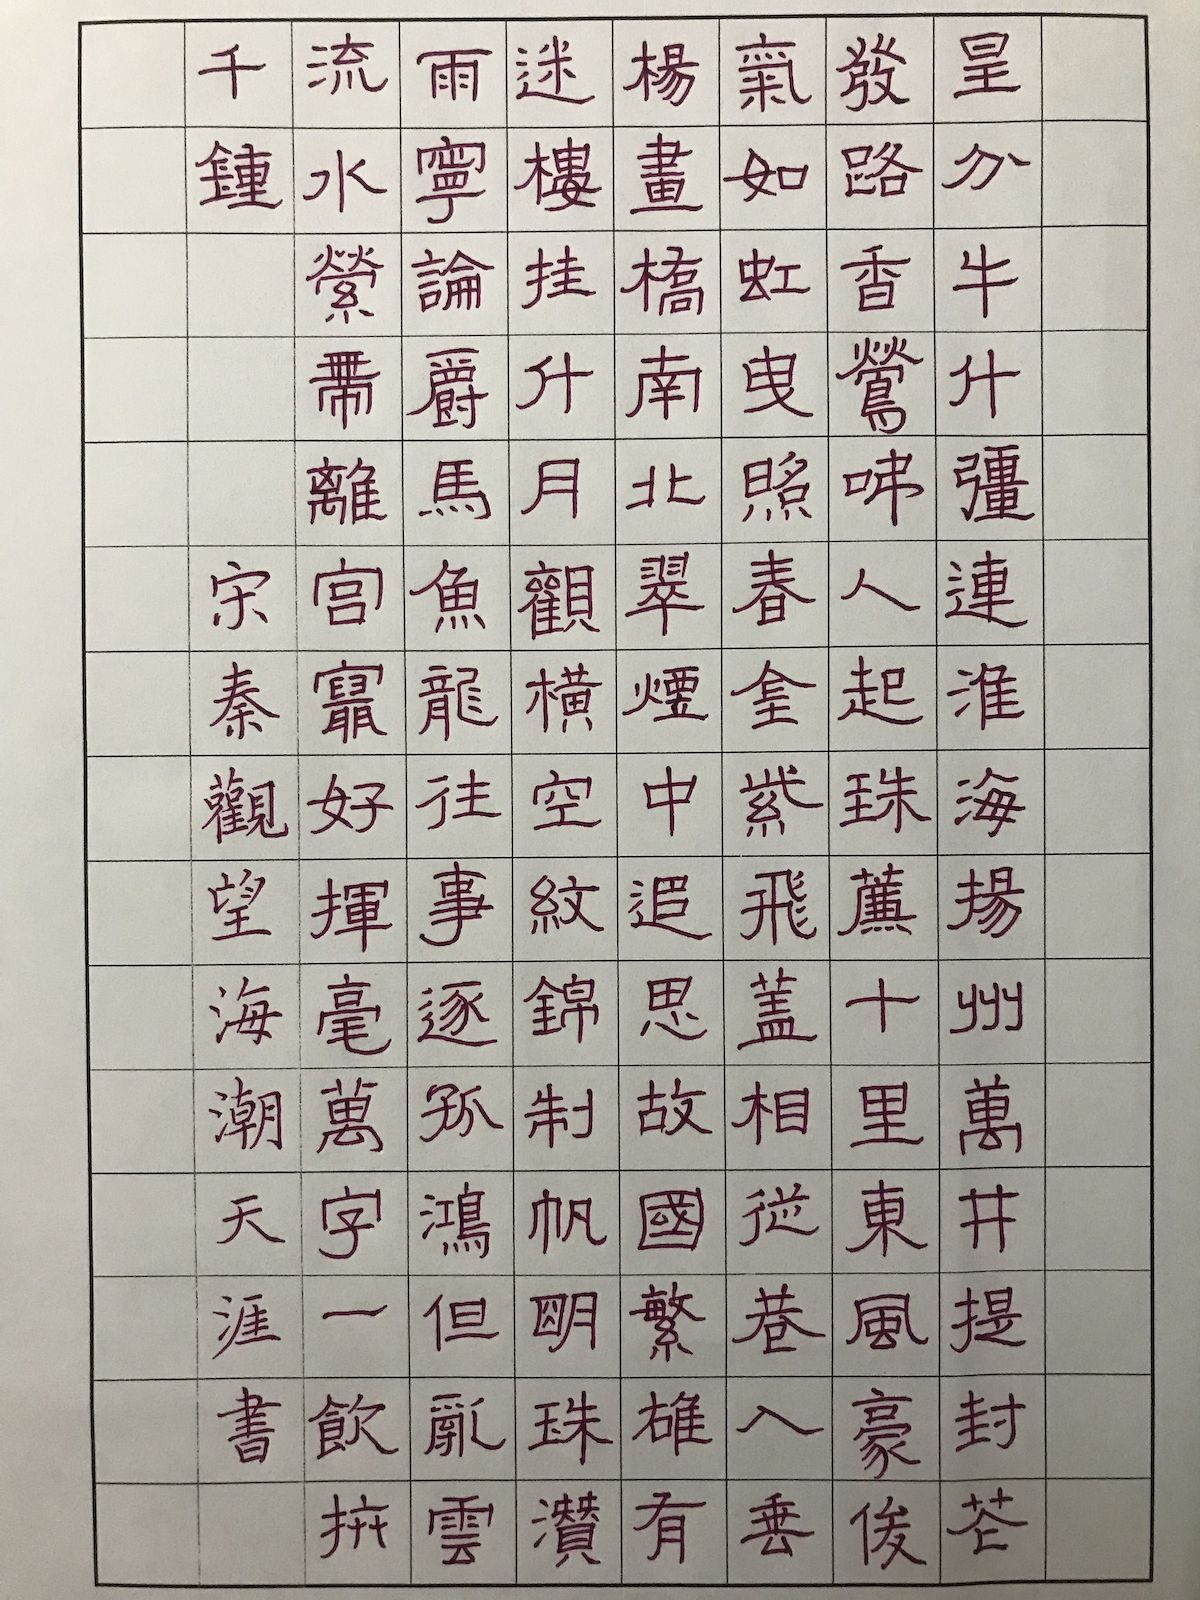 星分牛斗疆連淮海揚州萬井提封花
發路香鶯啼人起珠簾十里東風豪俊
氣如虹曳照春金紫飛蓋相從巷入垂
楊畫橋南北翠煙中追思故國繁雄有
迷樓挂斗月觀橫空紋錦制帆明珠灒
雨寧論爵馬魚龍往事逐孤鴻但亂雲
流水縈帶離宮最好揮毫萬字一飲拚
千鍾 宋秦觀望海潮天涯書